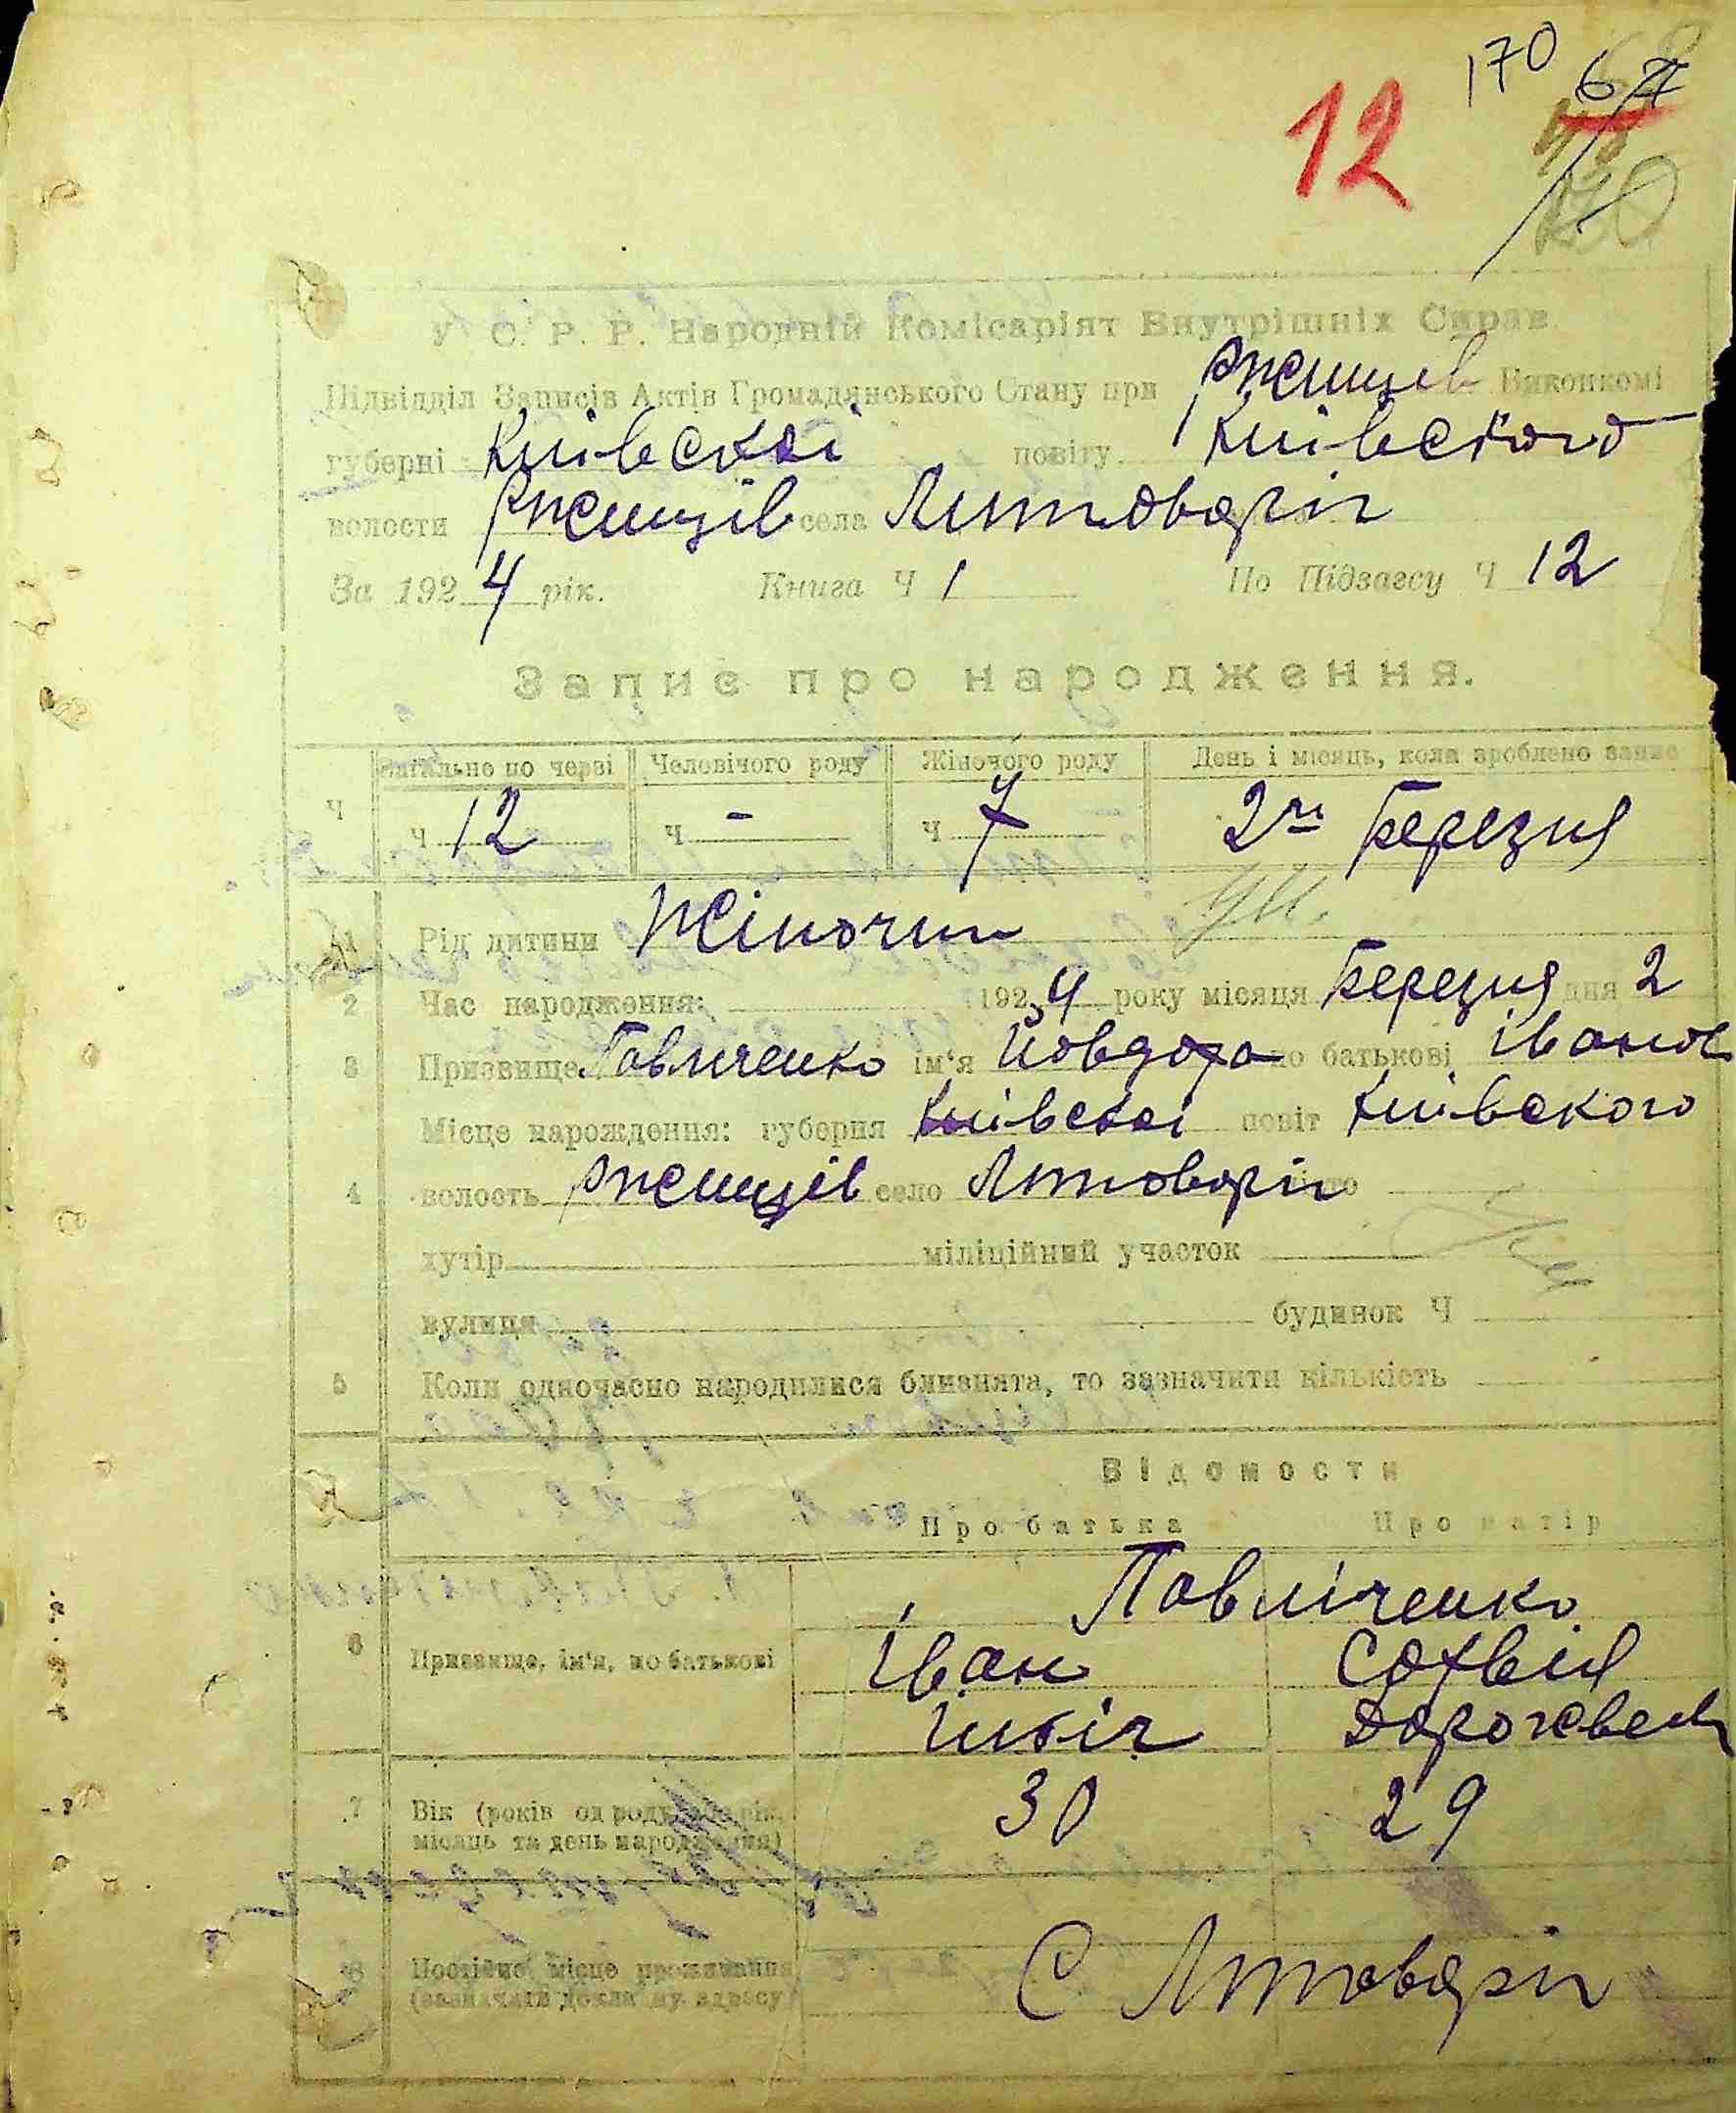 170 67
12
170
У. С. Р. Р. Народній Комісаріят Внутрішніх Справ.
Підвідділ Записів Актів Громадянського Стану при Ржищев Виконкомі
губерні Київскої повіту Київского
волости Ржищів села Литовори
За 1924 рік. Книга Ч 1 По Підзагсу Ч 12
Запис про народження.
Загально по черзі Человічого роду Жіночого роду День і місяць, коли зроблено запис
Ч Ч 12 Ч - Ч 7 2го Березня
1 Рід дитини Жіночи
2 Час народження: 1924 року місяця Березня дня 2
3 Призвище Павличенко ім'я Йовдоха по батькові Іванов
Місце нарождення: губерня Київскої повіт Київского
4 волость Ржищів село Литовори
хутір міліційний участок
вулиця будинок Ч
5 Коли одночасно народилися близнята, то зазначити кількість
Відомости
Про батька Про матір
Павліченко
6 Призвище, ім'я, по батькові Іван Софвія
30 29
7 Вік (років од роду, або рік,
місяць та день народження)
8 Постійне місце проживання С Литовори
(зазначити докладну адресу)